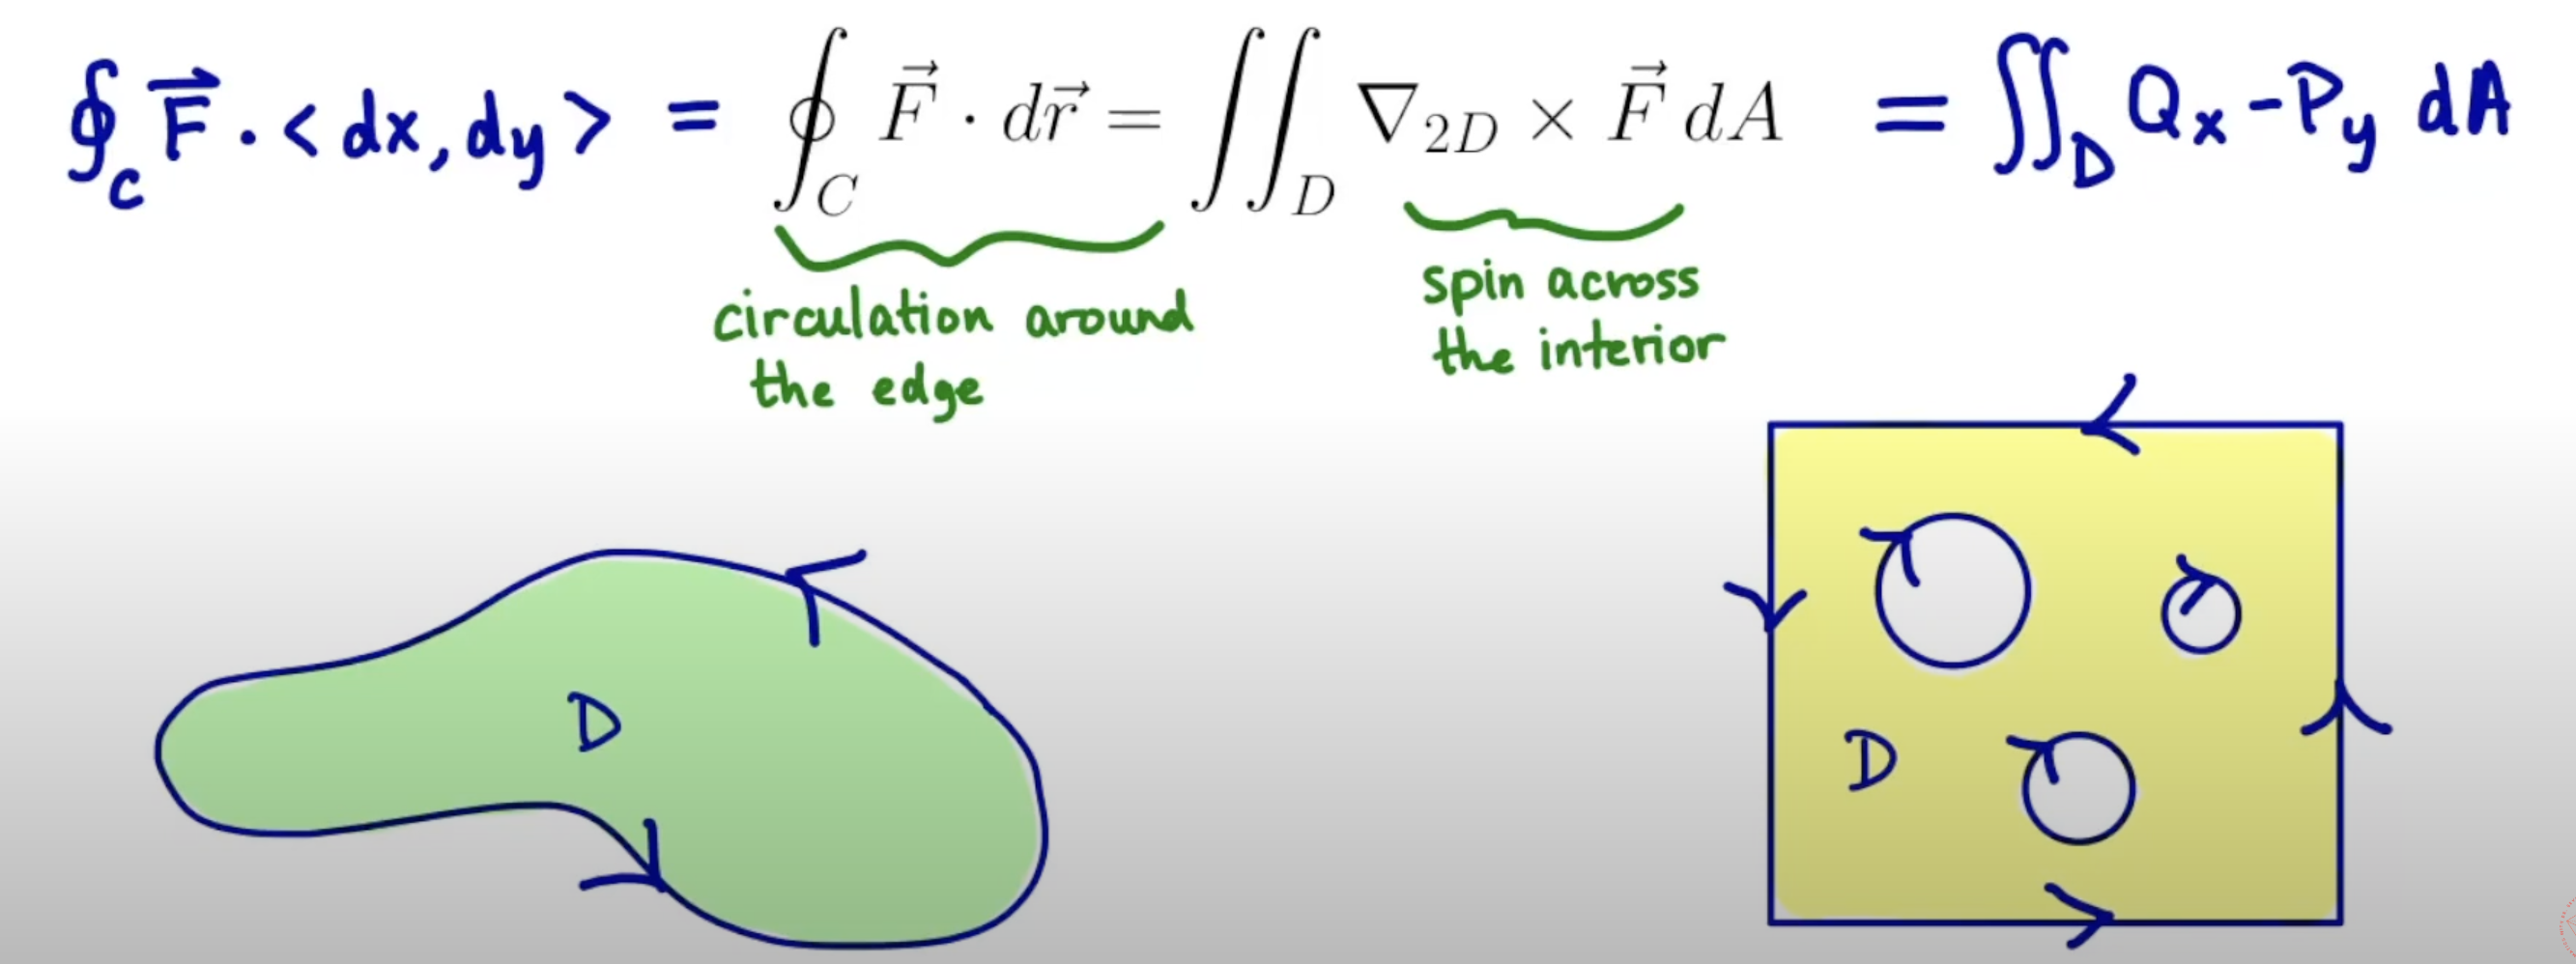 ∮_C F⃗ · < dx, dy > = ∮_C F⃗ · dr⃗ = ∬_D ∇_{2D} × F⃗ dA = ∬_D Q_x - P_y dA
circulation around
the edge
spin across
the interior
D
D